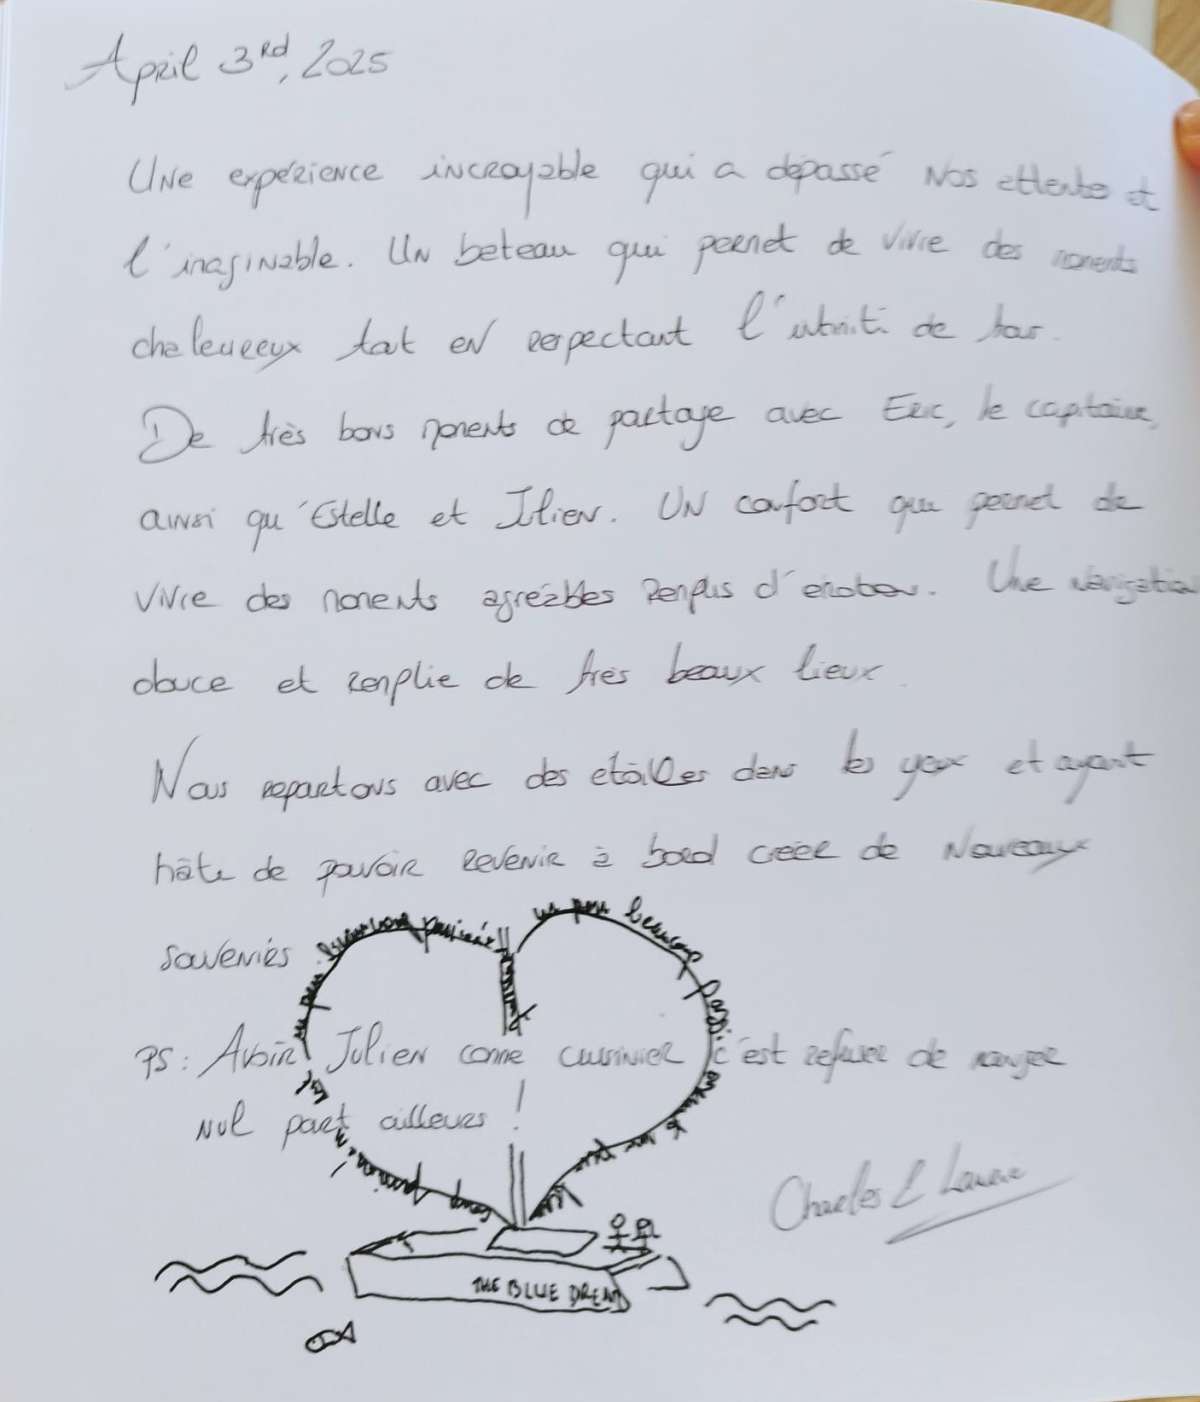 April 3rd, 2025
Une expérience incroyable qui a dépassé nos attentes et
l'imaginable. Un bateau qui permet de vivre des moments
chaleureux tout en respectant l'intimité de tous.
De très bons moments de partage avec Eric, le capitaine,
ainsi qu'Estelle et Julien. Un confort qui permet de
vivre des moments agréables remplis d'émotion. Une navigation
douce et remplie de très beaux lieux.
Nous repartons avec des étoiles dans les yeux et ayant
hâte de pouvoir revenir à bord créer de nouveaux
souvenirs
un peu beaucoup
PS: Avoir Julien comme cuisinier c'est refuser de manger
nul part ailleurs !
Charles & Laurie
THE BLUE DREAM